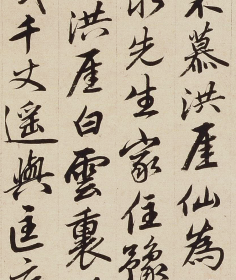 慕洪厓仙為
先生家住豫
洪厓白雲裏
千丈遥與匡